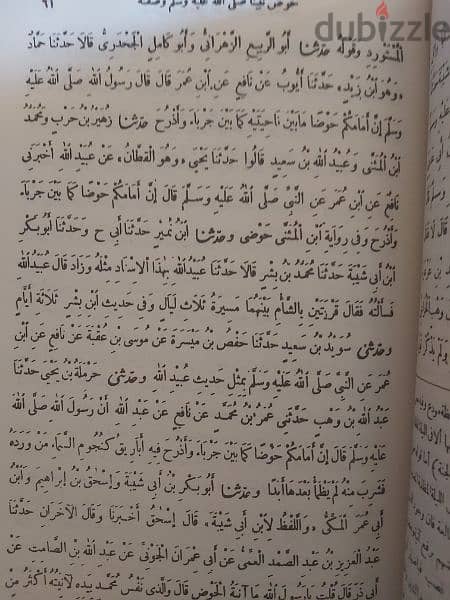 حوض نبينا صلى الله عليه وسلم وصفته ٦١
dubizzle
الْمُسْتَوْرِدِ وَقَوْلَهُ حدثنا أَبُو الرَّبِيعِ الزَّهْرَانِيُّ وَأَبُو كَامِلٍ الْجَحْدَرِيُّ قَالَا حَدَّثَنَا حَمَّادٌ
«وَهُوَ ابْنُ زَيْدٍ» حَدَّثَنَا أَيُّوبُ عَنْ نَافِعٍ عَنِ ابْنِ عُمَرَ قَالَ قَالَ رَسُولُ اللهِ صَلَّى اللهُ عَلَيْهِ
وَسَلَّمَ إِنَّ أَمَامَكُمْ حَوْضًا مَا بَيْنَ نَاحِيَتَيْهِ كَمَا بَيْنَ جَرْبَاءَ وَأَذْرُحَ حدثنا زُهَيْرُ بْنُ حَرْبٍ وَمُحَمَّدُ
ابْنُ الْمُثَنَّى وَعُبَيْدُ اللهِ بْنُ سَعِيدٍ قَالُوا حَدَّثَنَا يَحْيَى «وَهُوَ الْقَطَّانُ» عَنْ عُبَيْدِ اللهِ أَخْبَرَنِي
نَافِعٌ عَنِ ابْنِ عُمَرَ عَنِ النَّبِيِّ صَلَّى اللهُ عَلَيْهِ وَسَلَّمَ قَالَ إِنَّ أَمَامَكُمْ حَوْضًا كَمَا بَيْنَ جَرْبَاءَ
وَأَذْرُحَ وَفِي رِوَايَةِ ابْنِ الْمُثَنَّى حَوْضِي وحدثنا ابْنُ نُمَيْرٍ حَدَّثَنَا أَبِي ح وَحَدَّثَنَا أَبُو بَكْرِ
ابْنُ أَبِي شَيْبَةَ حَدَّثَنَا مُحَمَّدُ بْنُ بِشْرٍ قَالَا حَدَّثَنَا عُبَيْدُ اللهِ بِهٰذَا الْإِسْنَادِ مِثْلَهُ وَزَادَ قَالَ عُبَيْدُ اللهِ
فَسَأَلْتُهُ فَقَالَ قَرْيَتَيْنِ بِالشَّأْمِ بَيْنَهُمَا مَسِيرَةُ ثَلَاثِ لَيَالٍ وَفِي حَدِيثِ ابْنِ بِشْرٍ ثَلَاثَةِ أَيَّامٍ
وحدثني سُوَيْدُ بْنُ سَعِيدٍ حَدَّثَنَا حَفْصُ بْنُ مَيْسَرَةَ عَنْ مُوسَى بْنِ عُقْبَةَ عَنْ نَافِعٍ عَنِ ابْنِ
عُمَرَ عَنِ النَّبِيِّ صَلَّى اللهُ عَلَيْهِ وَسَلَّمَ بِمِثْلِ حَدِيثِ عُبَيْدِ اللهِ وحدثني حَرْمَلَةُ بْنُ يَحْيَى حَدَّثَنَا
عَبْدُ اللهِ بْنُ وَهْبٍ حَدَّثَنِي عُمَرُ بْنُ مُحَمَّدٍ عَنْ نَافِعٍ عَنْ عَبْدِ اللهِ أَنَّ رَسُولَ اللهِ صَلَّى اللهُ
عَلَيْهِ وَسَلَّمَ قَالَ إِنَّ أَمَامَكُمْ حَوْضًا كَمَا بَيْنَ جَرْبَاءَ وَأَذْرُحَ فِيهِ أَبَارِيقُ كَنُجُومِ السَّمَاءِ مَنْ وَرَدَهُ
فَشَرِبَ مِنْهُ لَمْ يَظْمَأْ بَعْدَهَا أَبَدًا وحدثنا أَبُو بَكْرِ بْنُ أَبِي شَيْبَةَ وَإِسْحَقُ بْنُ إِبْرَاهِيمَ وَابْنُ
أَبِي عُمَرَ الْمَكِّيُّ «وَاللَّفْظُ لِابْنِ أَبِي شَيْبَةَ» قَالَ إِسْحَقُ أَخْبَرَنَا وَقَالَ الْآخَرَانِ حَدَّثَنَا
عَبْدُ الْعَزِيزِ بْنُ عَبْدِ الصَّمَدِ الْعَمِّيُّ عَنْ أَبِي عِمْرَانَ الْجَوْنِيِّ عَنْ عَبْدِ اللهِ بْنِ الصَّامِتِ عَنْ
أَبِي ذَرٍّ قَالَ قُلْتُ يَا رَسُولَ اللهِ مَا آنِيَةُ الْحَوْضِ قَالَ وَالَّذِي نَفْسُ مُحَمَّدٍ بِيَدِهِ لَآنِيَتُهُ أَكْثَرُ مِنْ